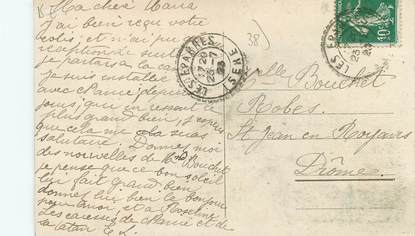 Ma chère Maria
J'ai bien reçu votre
colis et n'ai pu
réception de suite
je partais à la
je suis installée
avec depuis
jours, qui en ressent le
plus grand bien, j'espère
que cela me sera
salutaire. Donnez moi
des nouvelles de Mr Bouchet
je pense que ce bon soleil
lui fait grand bien,
donnez lui bien le bonjour
pour moi, et à Roseline
Les caresses de et de
sa tatan E. L.
38)
LES EPARRES
23-7
23
(ISERE)
10c
LES EPARRES
23
23
Melle Bouchet
Robes
St Jean en Royans
Drôme